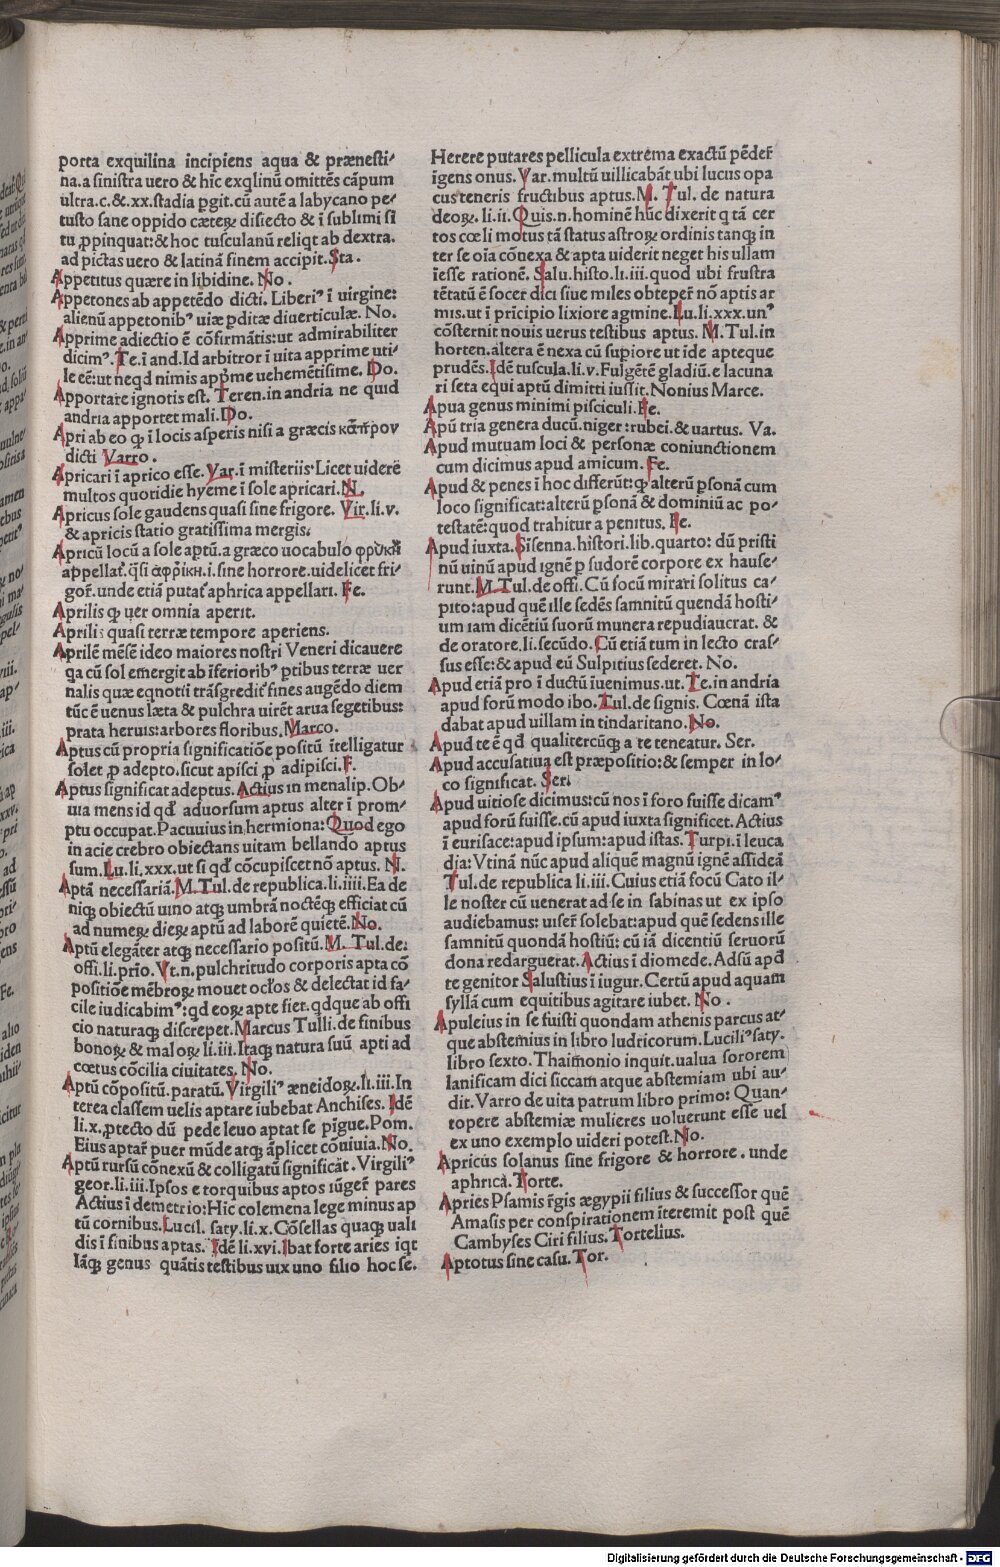 porta exquilina incipiens aqua & prænesti-
na.a sinistra uero & hic exqlinũ omittẽs cãpum
ultra.c.&.xx.stadia ꝑgit.cũ autẽ a labycano pe-
tusto sane oppido cæteꝝ disiecto & ĩ sublimi si
tu ꝓpinquat:& hoc tusculanũ reliqt ab dextra.
ad pictas uero & latinã finem accipit. Sta.
Appetitus quære in libidine. No.
Appetones ab appetẽdo dicti. Liberiꝰ ĩ uirgine:
alienũ appetonibꝰ uiæ ꝑditæ diuerticulæ. No.
Apprime adiectio ẽ cõfirmãtis:ut admirabiliter
dicimꝰ. Te.ĩ and.Id arbitror ĩ uita apprime uti-
le eẽ:ut neqd nimis app̃me uehemẽtissime. Do.
Apportare ignotis est. Teren.in andria ne quid
andria apportet mali. Do.
Apri ab eo ꝙ ĩ locis asperis nisi a græcis κάπρον
dicti Varro.
Apricari ĩ aprico esse. Var.ĩ misteriis Licet uiderẽ
multos quotidie hyeme ĩ sole apricari. N.
Apricus sole gaudens quasi sine frigore. Vir.li.v.
& apricis statio gratissima mergis.
Apricũ locũ a sole aptũ.a græco uocabulo φρύκη
appellat̃.q̃si ἀφρίκη.i.sine horrore.uidelicet fri-
gor̃.unde etiã putat̃ aphrica appellari. Fe.
Aprilis ꝙ uer omnia aperit.
Aprilis quasi terræ tempore aperiens.
Aprilẽ mẽsẽ ideo maiores nostri Veneri dicauere
qa cũ sol emergit ab ĩferioribꝰ ꝑtibus terræ uer
nalis quæ eqnotii trãsgredit̃ fines augẽdo diem
tũc ẽ uenus læta & pulchra uirẽt arua segetibus:
prata heruis:arbores floribus. Marco.
Aptus cũ propria significatiõe positũ ĩtelligatur
solet ꝓ adepto.sicut apisci ꝓ adipisci. F.
Aptus significat adeptus. Actius in menalip. Ob-
uia mens id qd̃ aduorsum aptus alter ĩ prom-
ptu occupat. Pacuuius in hermiona: Quod ego
in acie crebro obiectans uitam bellando aptus
sum. Lu.li.xxx.ut si qd̃ cõcupiscet nõ aptus. N.
Aptã necessariã. M.Tul.de republica.li.iiii.Ea de
niqꝫ obiectũ uino atqꝫ umbrã noctẽqꝫ efficiat cũ
ad numeꝝ dieꝝ aptũ ad laborẽ quietẽ. No.
Aptũ elegãter atqꝫ necessario positũ. M. Tul.de:
offi.li.prĩo. Vt.n.pulchritudo corporis apta cõ
positiõe mẽbroꝝ mouet oc̃los & delectat id fa-
cile iudicabimꝰ:qd eoꝝ apte fier̃.qdque ab offi
cio naturaqꝫ discrepet. Marcus Tulli.de finibus
bonoꝝ & maloꝝ li.iii. Itaqꝫ natura suũ apti ad
cœtus cõcilia ciuitates. No.
Aptũ cõpositũ.paratũ. Virgiliꝰ æneidoꝝ.li.iii.In
terea classem uelis aptare iubebat Anchises. Idẽ
li.x.ꝓtecto dũ pede leuo aptat se pigue. Pom.
Eius aptar̃ puer mũde atqꝫ ãplicet cõuiuia. No.
Aptũ rursũ cõnexũ & colligatũ significãt. Virgiliꝰ
geor.li.iii.Ipsos e torquibus aptos iũger̃ pares
Actius ĩ demetrio: Hic colemena lege minus ap
tũ cornibus. Lucil. saty.li.x.Cõsellas quaqꝫ uali
dis ĩ finibus aptas. Idẽ li.xvi.Ibat forte aries iqt
Iãqꝫ genus quãtis testibus uix uno filio hoc se.
Herere putares pellicula extrema exactũ pẽder̃
ĩgens onus. Var.multũ uillicabãt ubi lucus opa
cus teneris fructibus aptus. M. Tul. de natura
deoꝝ.li.ii.Quis.n.hominẽ hũc dixerit q tã cer
tos cœli motus tã status astroꝝ ordinis tanqꝫ in
ter se oĩa cõnexa & apta uiderit neget his ullam
ĩesse rationẽ. Salu.histo.li.iii.quod ubi frustra
tẽtatũ ẽ socer dici siue miles obteper̃ nõ aptis ar
mis.ut ĩ prĩcipio lixiore agmine. Lu.li.xxx.unꝰ
cõsternit nouis uerus testibus aptus. M.Tul.in
horten.altera ẽ nexa cũ supiore ut ide apteque
prudẽs. Idẽ tuscula.li.v.Fulgẽtẽ gladiũ.e lacuna
ri seta equi aptũ dimitti iussit. Nonius Marce.
Apua genus minimi pisciculi. Fe.
Apũ tria genera ducũ.niger:rubei.& uartus. Va.
Apud mutuam loci & personæ coniunctionem
cum dicimus apud amicum. Fe.
Apud & penes ĩ hoc differũt:ꝙ alterũ ꝑsonã cum
loco significat:alterũ ꝑsonã & dominiũ ac po-
testatẽ:quod trahitur a penitus. Fe.
Apud iuxta. Sisenna.histori.lib.quarto: dũ pristi
nũ uinũ apud ignẽ ꝑ sudorẽ corpore ex hause-
runt. M.Tul.de offi. Cũ focũ mirari solitus ca-
pito:apud quẽ ille sedẽs samnitũ quendã hosti-
um iam dicẽtiũ suorũ munera repudiauerat. &
de oratore.li.secũdo. Cũ etiã tum in lecto cras-
sus esse:& apud eũ Sulpitius sederet. No.
Apud etiã pro ĩ ductũ ĩuenimus.ut. Te.in andria
apud forũ modo ibo. Tul.de signis. Cœnã ista
dabat apud uillam in tindaritano. No.
Apud te ẽ qd̃ qualitercũqꝫ a te teneatur. Ser.
Apud accusatiua est præpositio:& semper in lo-
co significat. Ser.
Apud uitiose dicimus:cũ nos ĩ foro fuisse dicamꝰ
apud forũ fuisse.cũ apud iuxta significet. Actius
ĩ eurisace:apud ipsum:apud istas. Turpi.ĩ leuca
dia: Vtinã nũc apud aliquẽ magnũ ignẽ assideã
Tul.de republica li.iii. Cuius etiã focũ Cato il-
le noster cũ uenerat ad se in sabinas ut ex ipso
audiebamus: uiser̃ solebat:apud quẽ sedens ille
samnitũ quondã hostiũ: cũ iã dicentiũ seruorũ
dona redarguerat. Actius ĩ diomede. Adsũ apd̃
te genitor Salustius ĩ iugur. Certũ apud aquam
syllã cum equitibus agitare iubet. No.
Apuleius in se fuisti quondam athenis parcus at-
que abstemius in libro ludricorum. Luciliꝰ saty.
libro sexto. Thaimonio inquit.ualua sororem
lanificam dici siccam atque abstemiam ubi au-
dit. Varro de uita patrum libro primo: Quan-
topere abstemiæ mulieres uoluerunt esse uel
ex uno exemplo uideri potest. No.
Apricus solanus sine frigore & horrore. unde
aphrica. Torte.
Apries Psamis r̃gis ægypii filius & successor quẽ
Amasis per conspirationem ĩteremit post quẽ
Cambyses Ciri filius. Tortelius.
Aptotus sine casu. Tor.
Digitalisierung gefördert durch die Deutsche Forschungsgemeinschaft - DFG